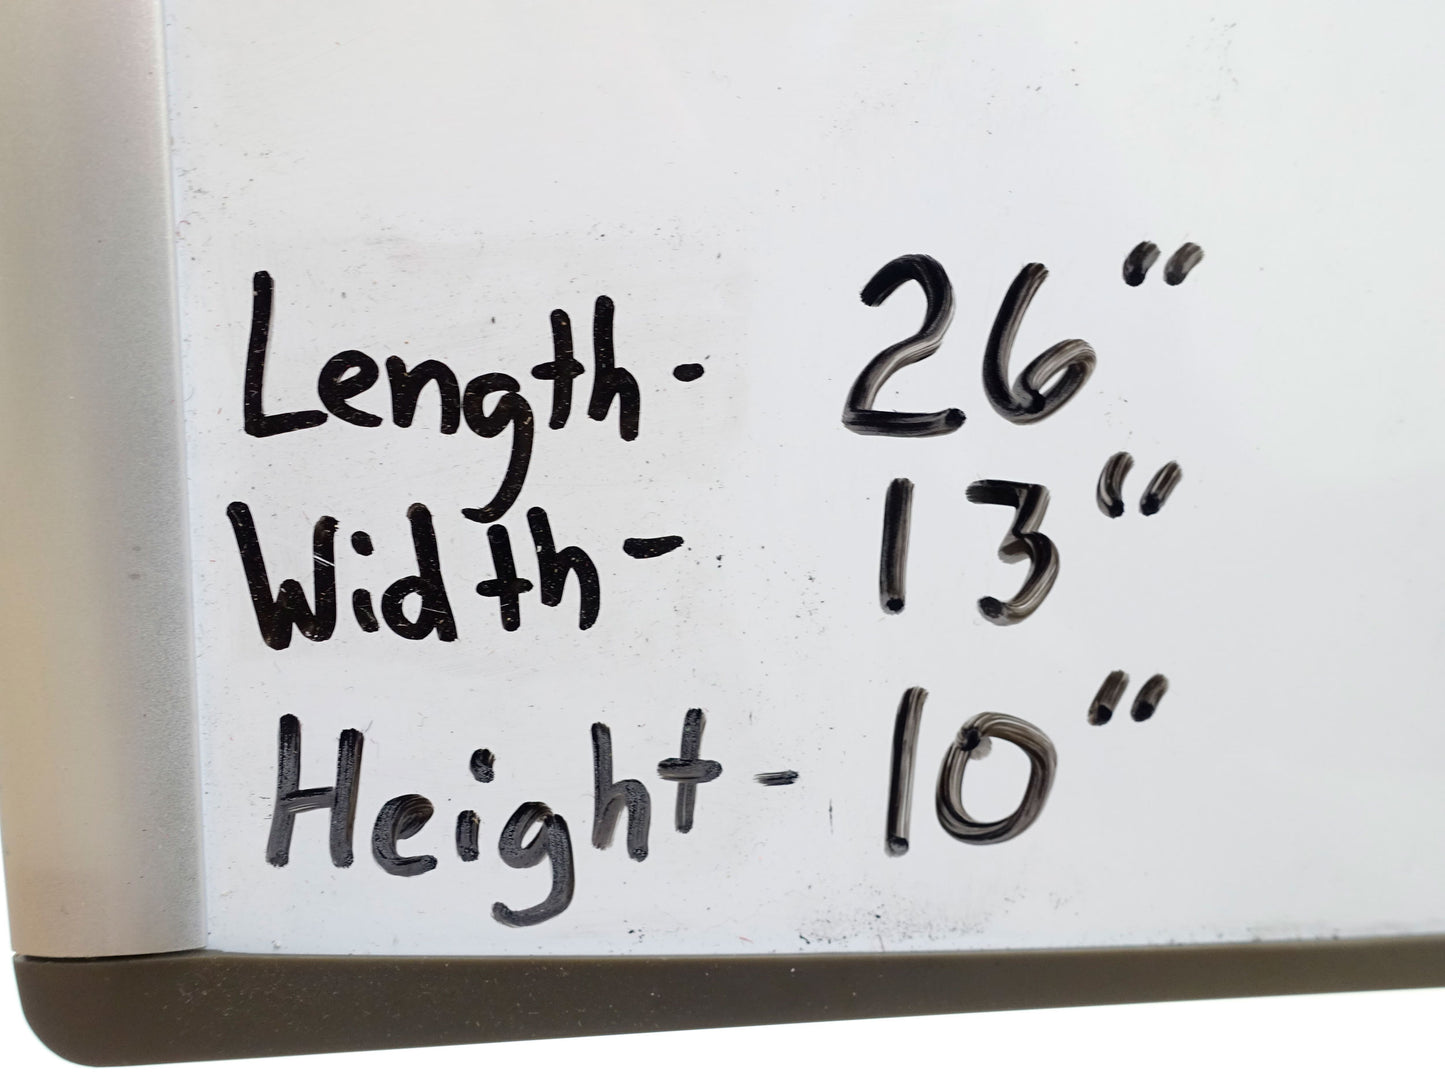 Length- 26"
Width- 13"
Height- 10"